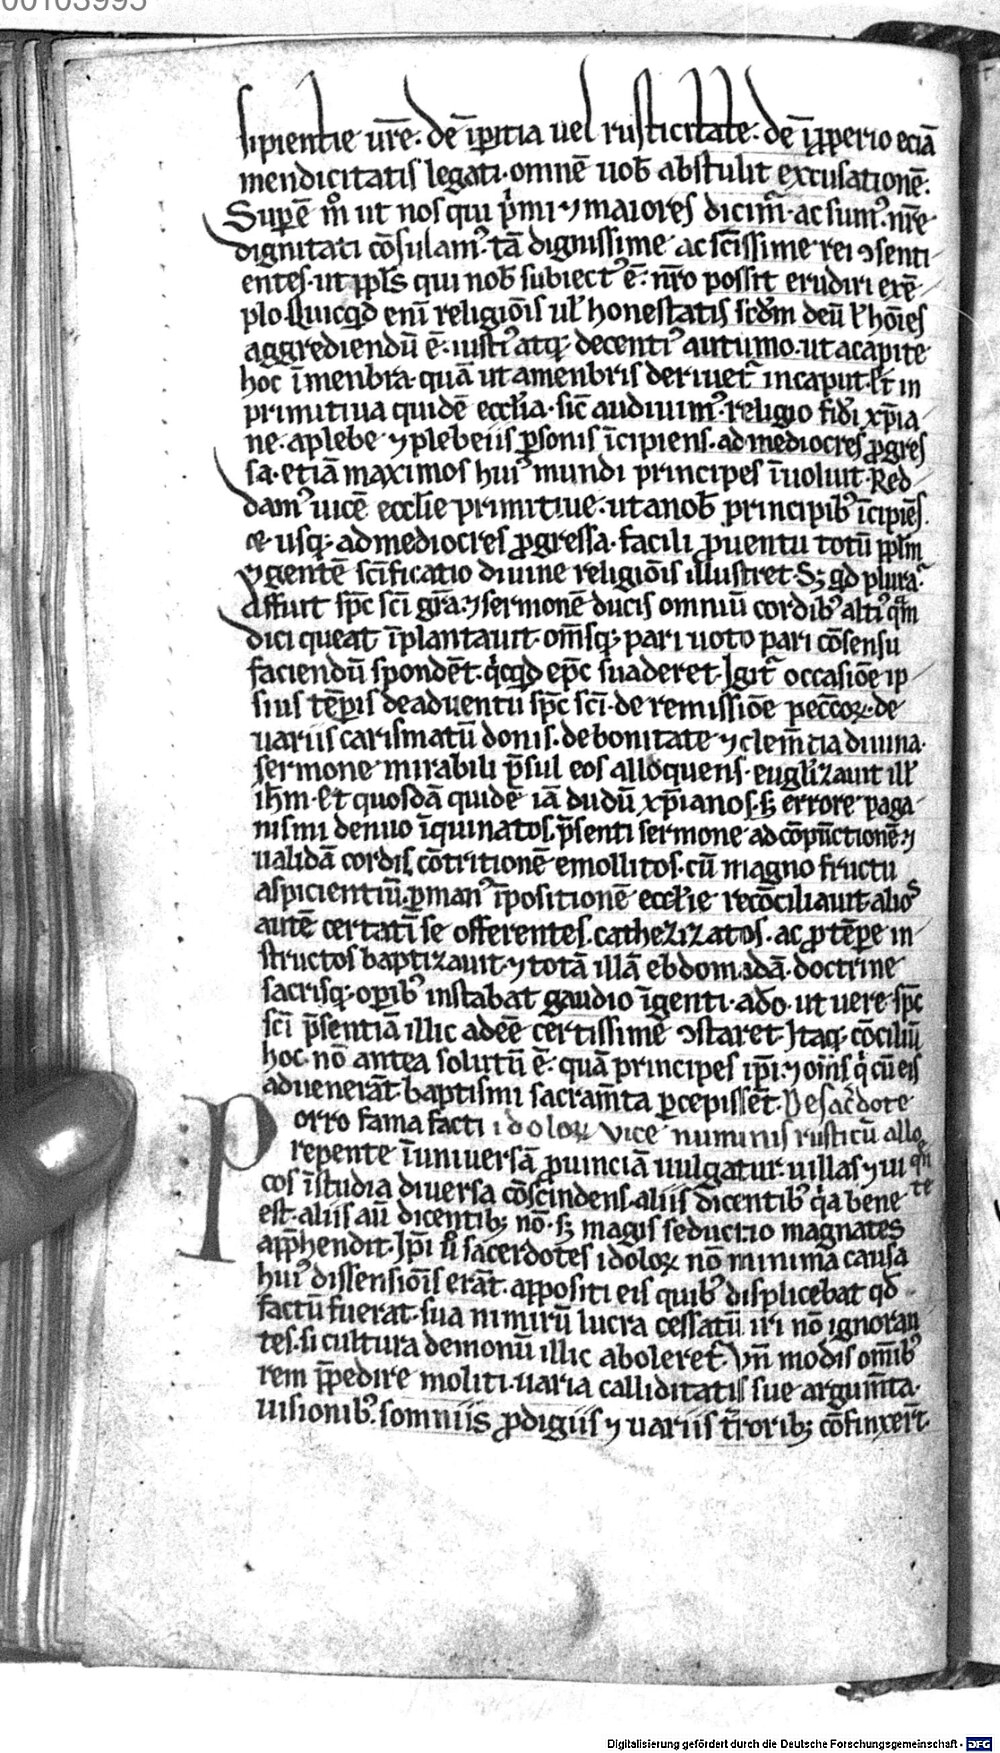 00103995
sipientie ur̄e· de īpitia uel rusticitate· de īpperio eciā
mendicitatis legati· omnē uob̄ abstulit excusationē·
Supē m̊ ut nos qui p̍mi ⁊ maiores dicim̃· ac sumꝰ· nr̄e
dignitati cōsulamꝰ· tā dignissime ac sc̄issime rei ꝯsenti
entes· ut ppl̄s qui nob̄ subiectꝰ ē· nr̄o possit erudiri exē
plo· Quicqd enī religiōis ul̓ honestatis scd̄m deū l̓ hōies
aggrediendū ē· iustiꝰ atq; decentiꝰ autumo· ut a capite
hoc ī menbra· quā ut a menbris deriuet̃ in caput· Et in
primitiua quidē eccl̄ia· sic̄ audiuimꝰ· religio fidi xp̄ia
ne· a plebe ⁊ plebeiis ꝑsonis īcipiens· ad mediocres ꝓgres
sa· etiā maximos huiꝰ mundi principes īuoluit· Red
damꝰ uicē eccl̄ie primitiue· ut a nob̄ principibꝰ īcipiēs
usq; ad mediocres ꝓgressa· facili ꝓuentu totū ppl̄m
⁊ gentē sc̄ificatio diuine religiōis illustret· S; qd plura·
Affuit sp̄c sc̄i gr̄a· ⁊ sermonē ducis omniū cordibꝰ altiꝰ qm̄
dici queat īplantauit· om̄sq; pari uoto pari cōsensu
faciendū spondēt· q̍cqd ep̄c suaderet· Igit̃ occasiōe ip
sius tēpis de aduentu sp̄c sc̄i· de remissiōe pecc̄oꝝ· de
uariis carismatū donis· de bonitate ⁊ clem̄tia diuina·
sermone mirabili p̄sul eos alloquens· euglizauit ill̓
ih̄m· Et quosdā quidē iā dudū xp̄ianos· s; errore paga
nismi denuo īquinatos· p̄senti sermone ad cōpūctionē ⁊
ualidā cordis cōtritionē emollitos· cū magno fructu
aspicientiū· ꝑ manꝰ īpositionē eccl̄ie recōciliauit· alios
autē certatī se offerentes· cathezizatos· ac ꝓ tēpe in
structos baptizauit· ⁊ totā illā ebdomadā· doctrine
sacrisq; opibꝰ instabat gaudio īgenti· ado· ut uere sp̄c
sc̄i p̄sentiā illic adeē certissime ꝯstaret· Itaq; cōciliū
hoc nō antea solutū ē· quā principes ip̄i· ⁊ om̄s q̍ cū eis
aduenerāt· baptismi sacram̄ta ꝑcepissēt· De sac̍dote
Porro fama facti idoloꝝ vice numinis rusticū allo
repente ī uniuersā ꝓuinciā uulgatur· uillas ⁊ ui qn̄
cos ī studia diuersa cōscindens· aliis dicentibꝰ q̍a bene te
est· aliis au dicentib; nō· s; magis seductio magnates
app̄hendit· Ip̄i u̍ sacerdotes idoloꝝ nō minima causa
huiꝰ dissensiōis erāt· appositi eis quibꝰ displicebat qd̄
factū fuerat· sua nimirū lucra cessatū iri nō ignoran
tes· si cultura demonū illic aboleret̃· Vn̄ modis om̄ibꝰ
rem īpedire moliti· uaria calliditatis sue argum̄ta·
uisionibꝰ· somniis ꝓdigiis ⁊ uariis t̄rorib; cōfinxer̄t·
Digitalisierung gefördert durch die Deutsche Forschungsgemeinschaft - DFG